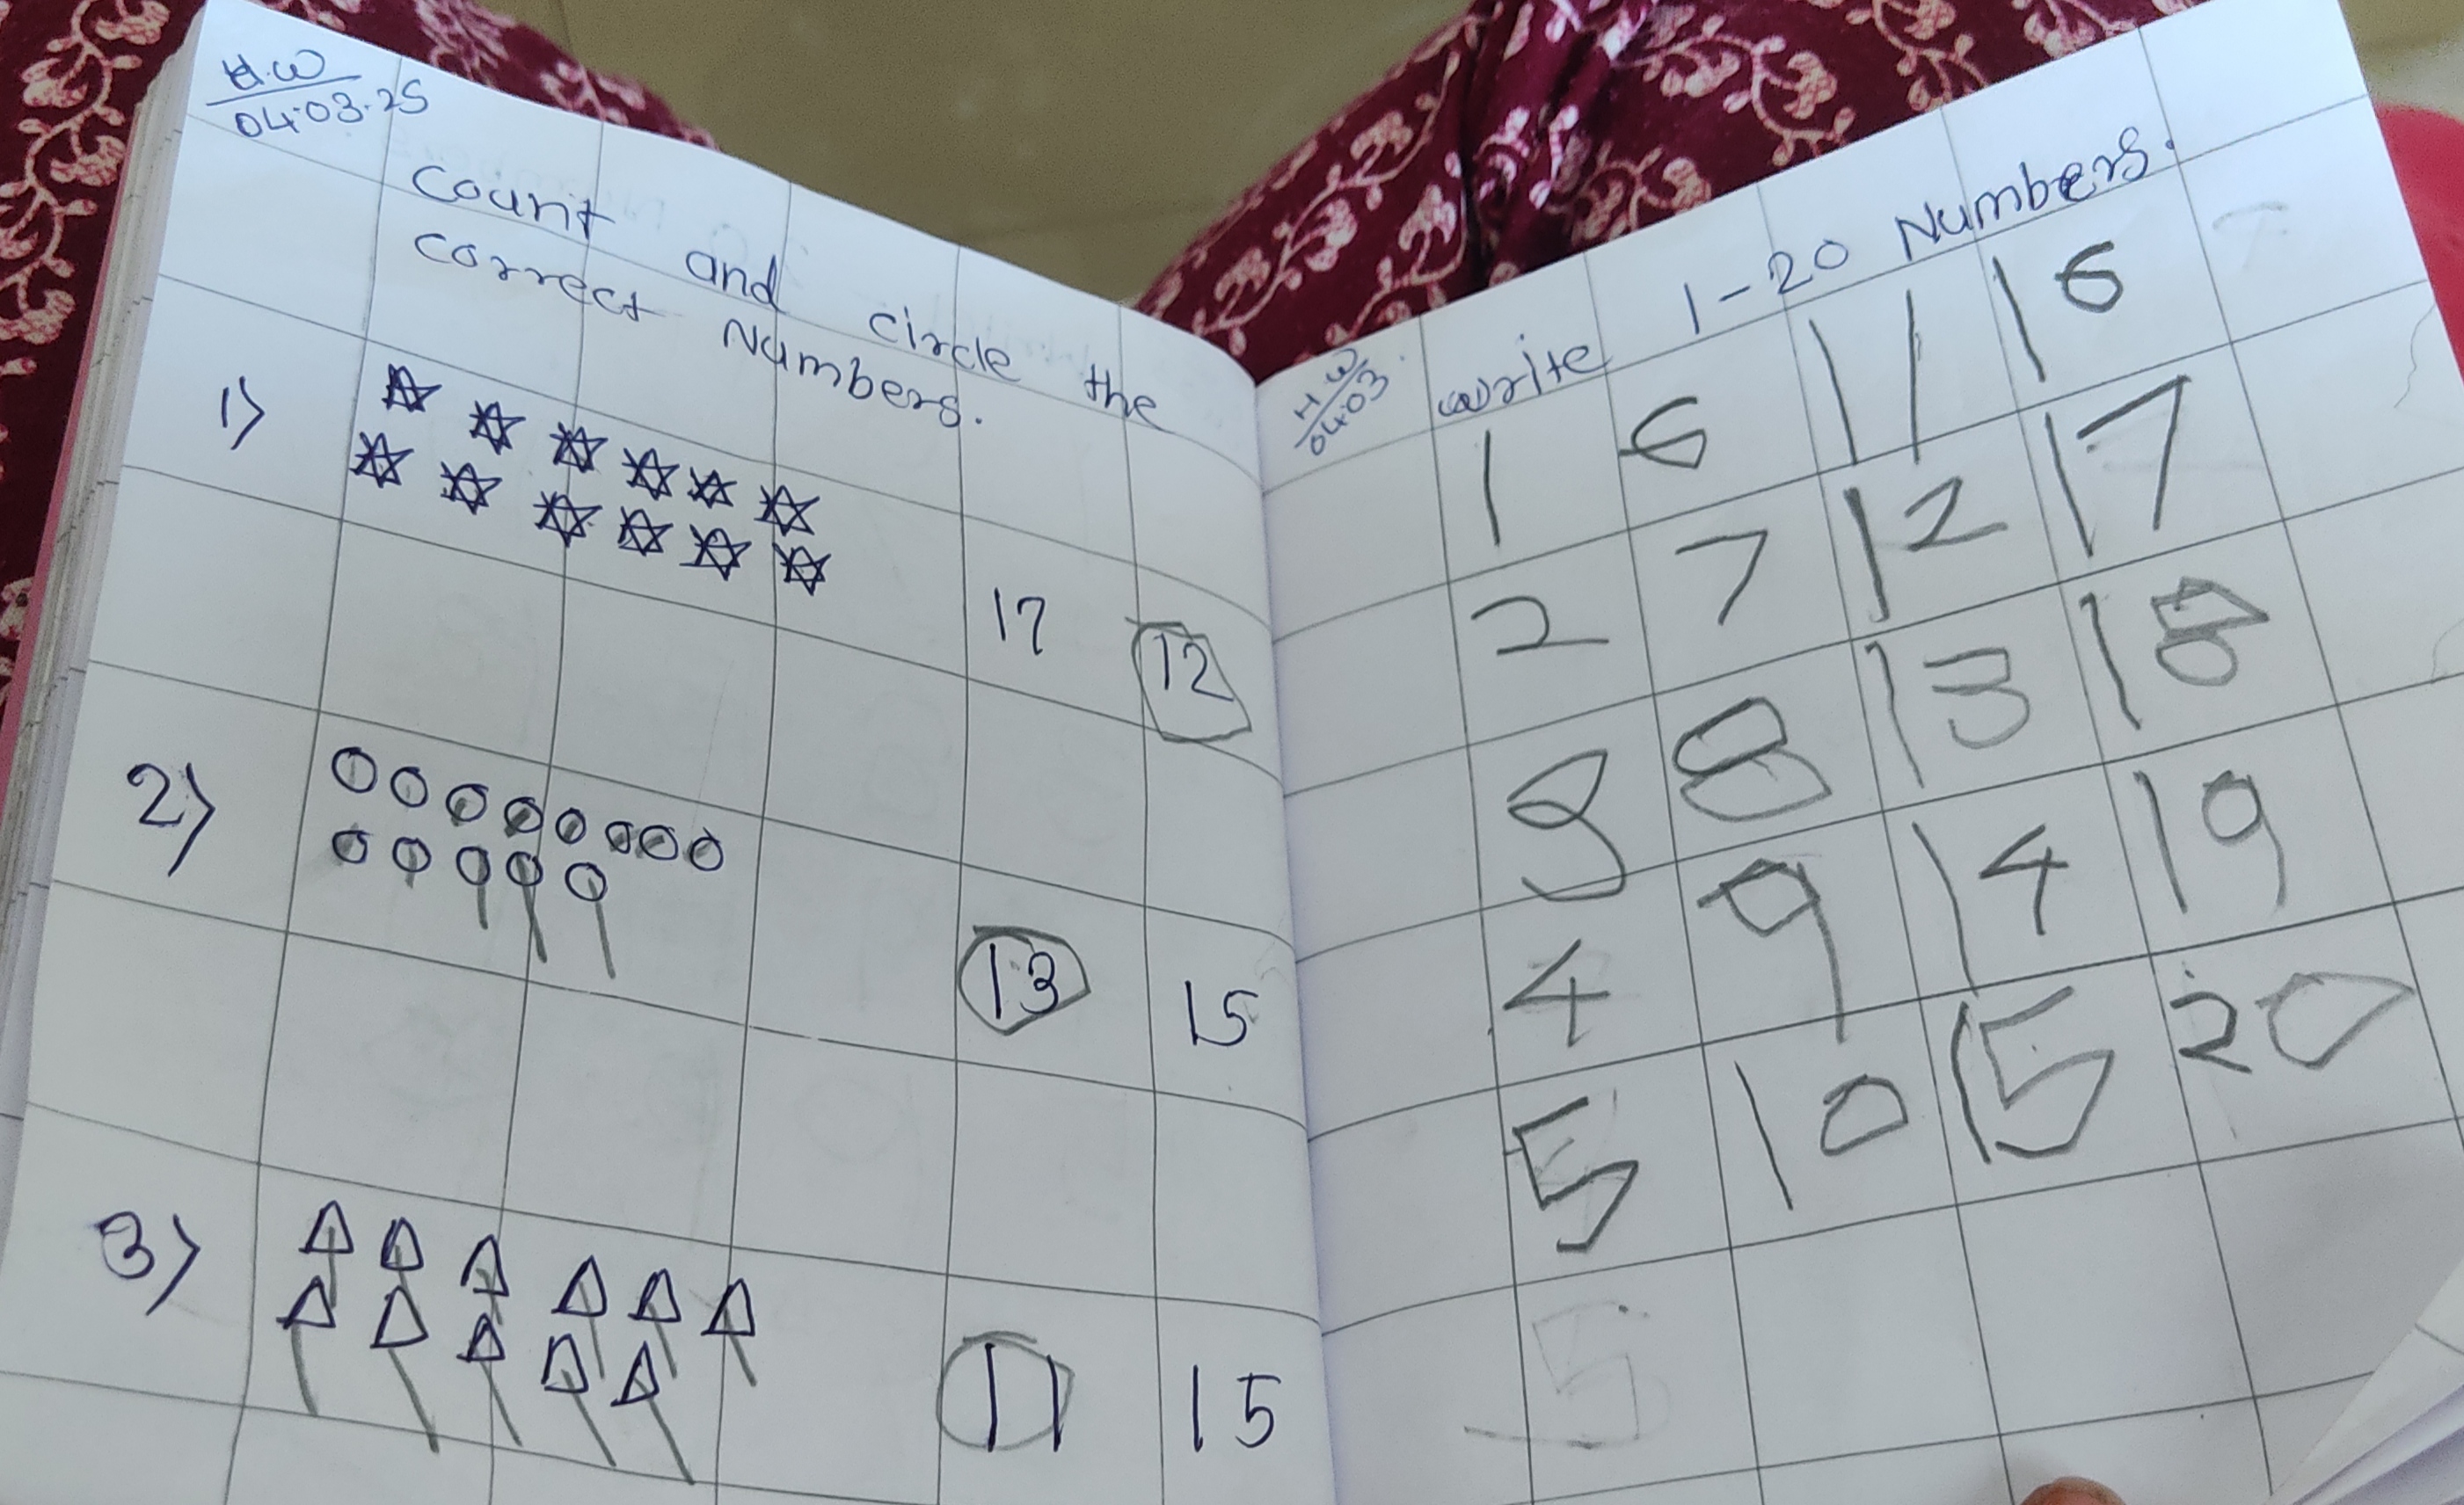 H.W
04.03.25
Count and circle the
correct Numbers.
1)
17 12
2)
13 15
3)
11 15
H.W
04.03
write 1-20 Numbers.
1 6 11 16
2 7 12 17
3 8 13 18
4 9 14 19
5 10 15 20
5